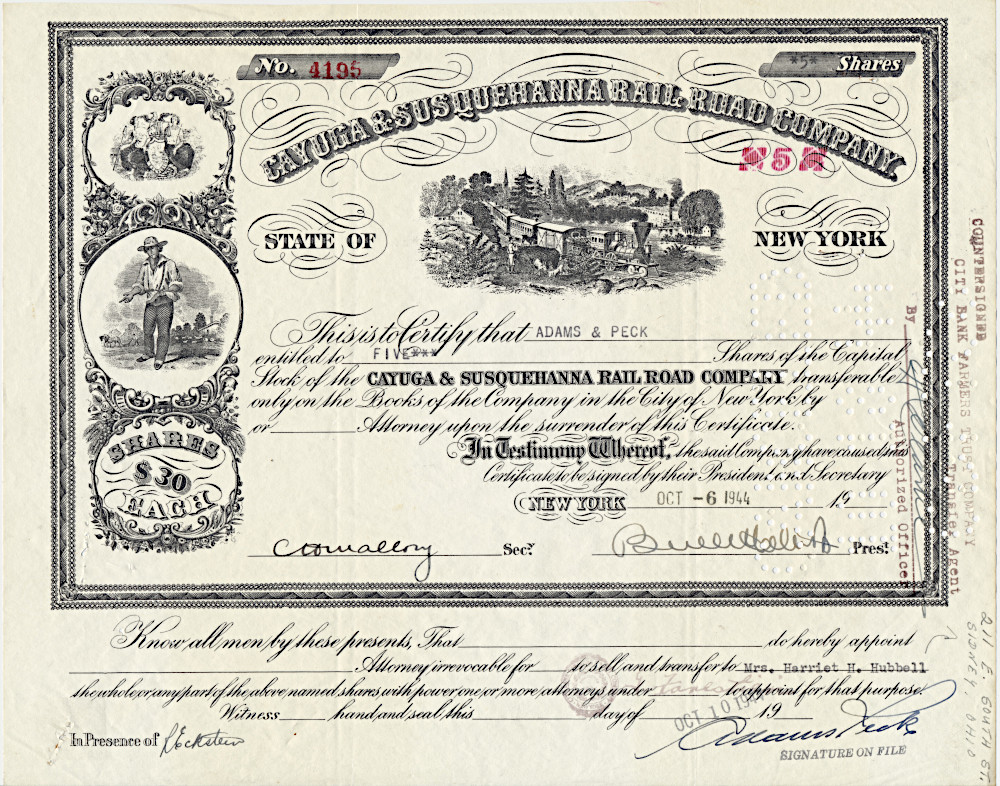 No. 4195
*5* Shares
CAYUGA & SUSQUEHANNA RAIL ROAD COMPANY
5
STATE OF NEW YORK
This is to Certify that ADAMS & PECK
entitled to FIVE*** Shares of the Capital
Stock of the CAYUGA & SUSQUEHANNA RAIL ROAD COMPANY transferable
only on the Books of the Company in the City of New York by
or Attorney upon the surrender of this Certificate.
In Testimony Whereof, the said Company have caused this
Certificate to be signed by their President and Secretary
NEW YORK OCT -6 1944 19
Secy. Prest.
SHARES
$30
EACH
COUNTERSIGNED
CITY BANK FARMERS TRUST COMPANY
Transfer Agent
By
Authorized Officer
Know all men by these presents, That do hereby appoint
Attorney irrevocable for to sell and transfer to Mrs. Harriet H. Hubbell
the whole, or any part of the above named shares with power one or more attorneys under to appoint for that purpose
Witness hand and seal this day of 19
OCT 10 1944
In Presence of R Eckstein
Adams Peck
SIGNATURE ON FILE
211 E. SOUTH ST.
SIDNEY, OHIO